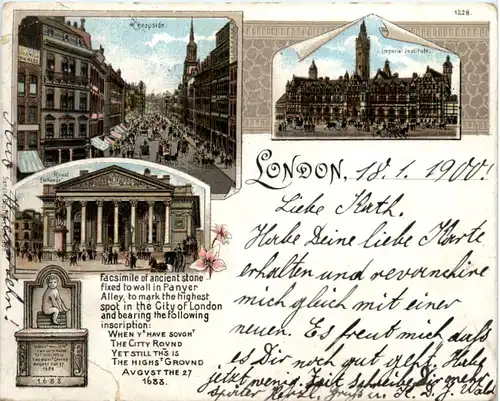 1228.
Cheapside.
Imperial Institute.
Royal
Exchange
LONDON, 18.1.1900!
Liebe Kath.
Habe Deine liebe Karte
erhalten und revanchire
mich gleich mit einer
neuen. Es freut mich daß
es Dir noch gut geht. Habe
jetzt wenig Zeit schreibe Dir mehr
später Herzl. gruß
Facsimile of ancient stone
fixed to wall in Panyer
Alley, to mark the highest
spot in the City of London
and bearing the following
inscription:
WHEN Y^E HAVE SOVGH^T
THE CITTY ROVND
YET STILL TH^IS IS
THE HIGHS^T GROVND
AVGVST THE 27
1688.
1688